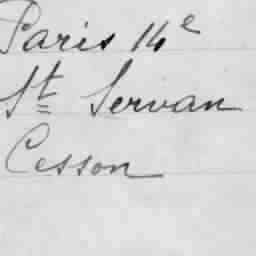 Paris 14e
St Servan
Cesson